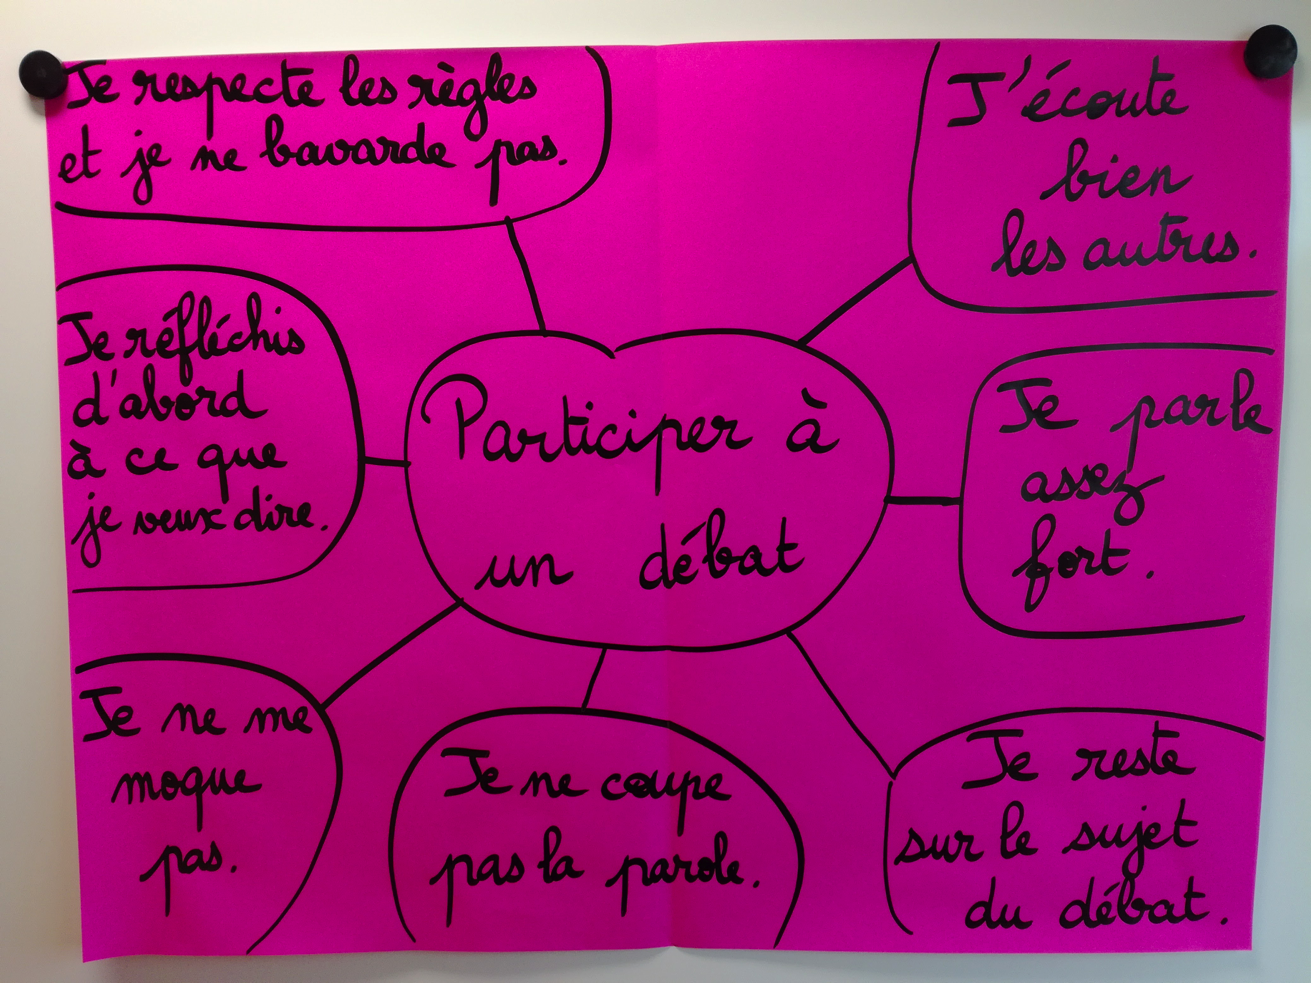 Je respecte les règles
et je ne bavarde pas.
J'écoute
bien
les autres.
Je réfléchis
d'abord
à ce que
je veux dire.
Participer à
un débat
Je parle
assez
fort.
Je ne me
moque
pas.
Je ne coupe
pas la parole.
Je reste
sur le sujet
du débat.